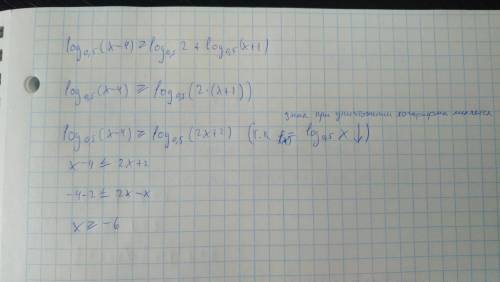 log₀,₅(x-4) ≥ log₀,₅ 2 + log₀,₅(x+1)
log₀,₅(x-4) ≥ log₀,₅(2·(x+1))
знак при уничтожении логарифма меняется
log₀,₅(x-4) ≥ log₀,₅(2x+2) (т.к. log₀,₅ x ↓)
x-4 ≤ 2x+2
-4-2 ≤ 2x-x
x ≥ -6